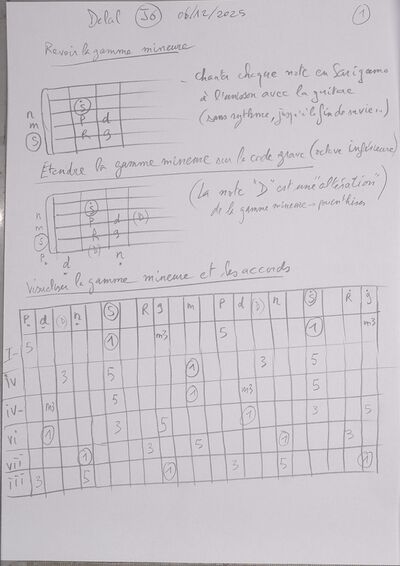 Delal Jo 06/12/2025 1
Revoir la gamme mineure
- chanter chaque note en Sarigama
à l'unisson avec la guitare
(sans rythme, jusqu'à la fin de
ṡ
n P d
m R g
S
Étendre la gamme mineure sur la corde grave (octave inférieure)
(La note "D" est une "altération"
de la gamme mineure → parenthèses
ṡ
n P d (D)
m R g
S (D)
P
d n
Visualiser la gamme mineure et les accords
P d (D) n S R g m P d (D) n Ṡ R g
I- 5 1 m3 5 1 m3
IV 3 5 1 3 5
iv- m3 5 1 m3 5
vi 1 3 5 1 3 5
vii 1 3 5 1 3
iii 3 5 1 3 5 1